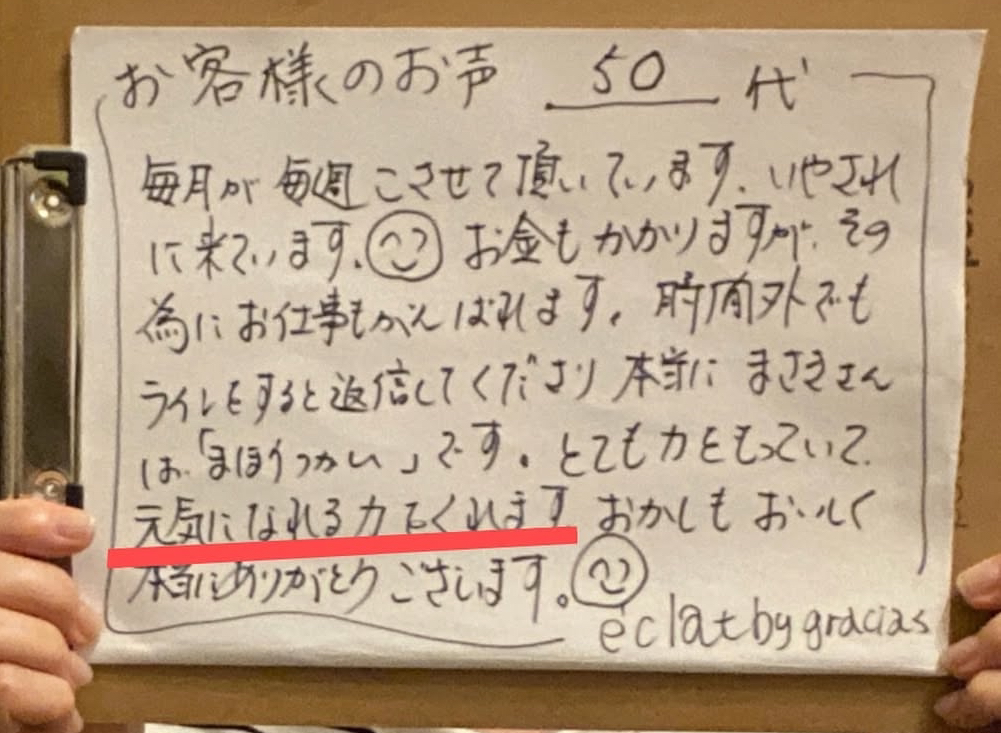 お客様のお声 50 代
毎月が 毎週 こさせて頂いています、いやされ
に来ています。お金もかかりますが、その
為にお仕事もがんばれます。時間外でも
ラインをすると返信してくださり 本当に まさきさん
は、「まほうつかい」です。とても力をもっていて、
元気になれる力をくれます おかしも おいしく
本当にありがとうございます。
éclatbygracias